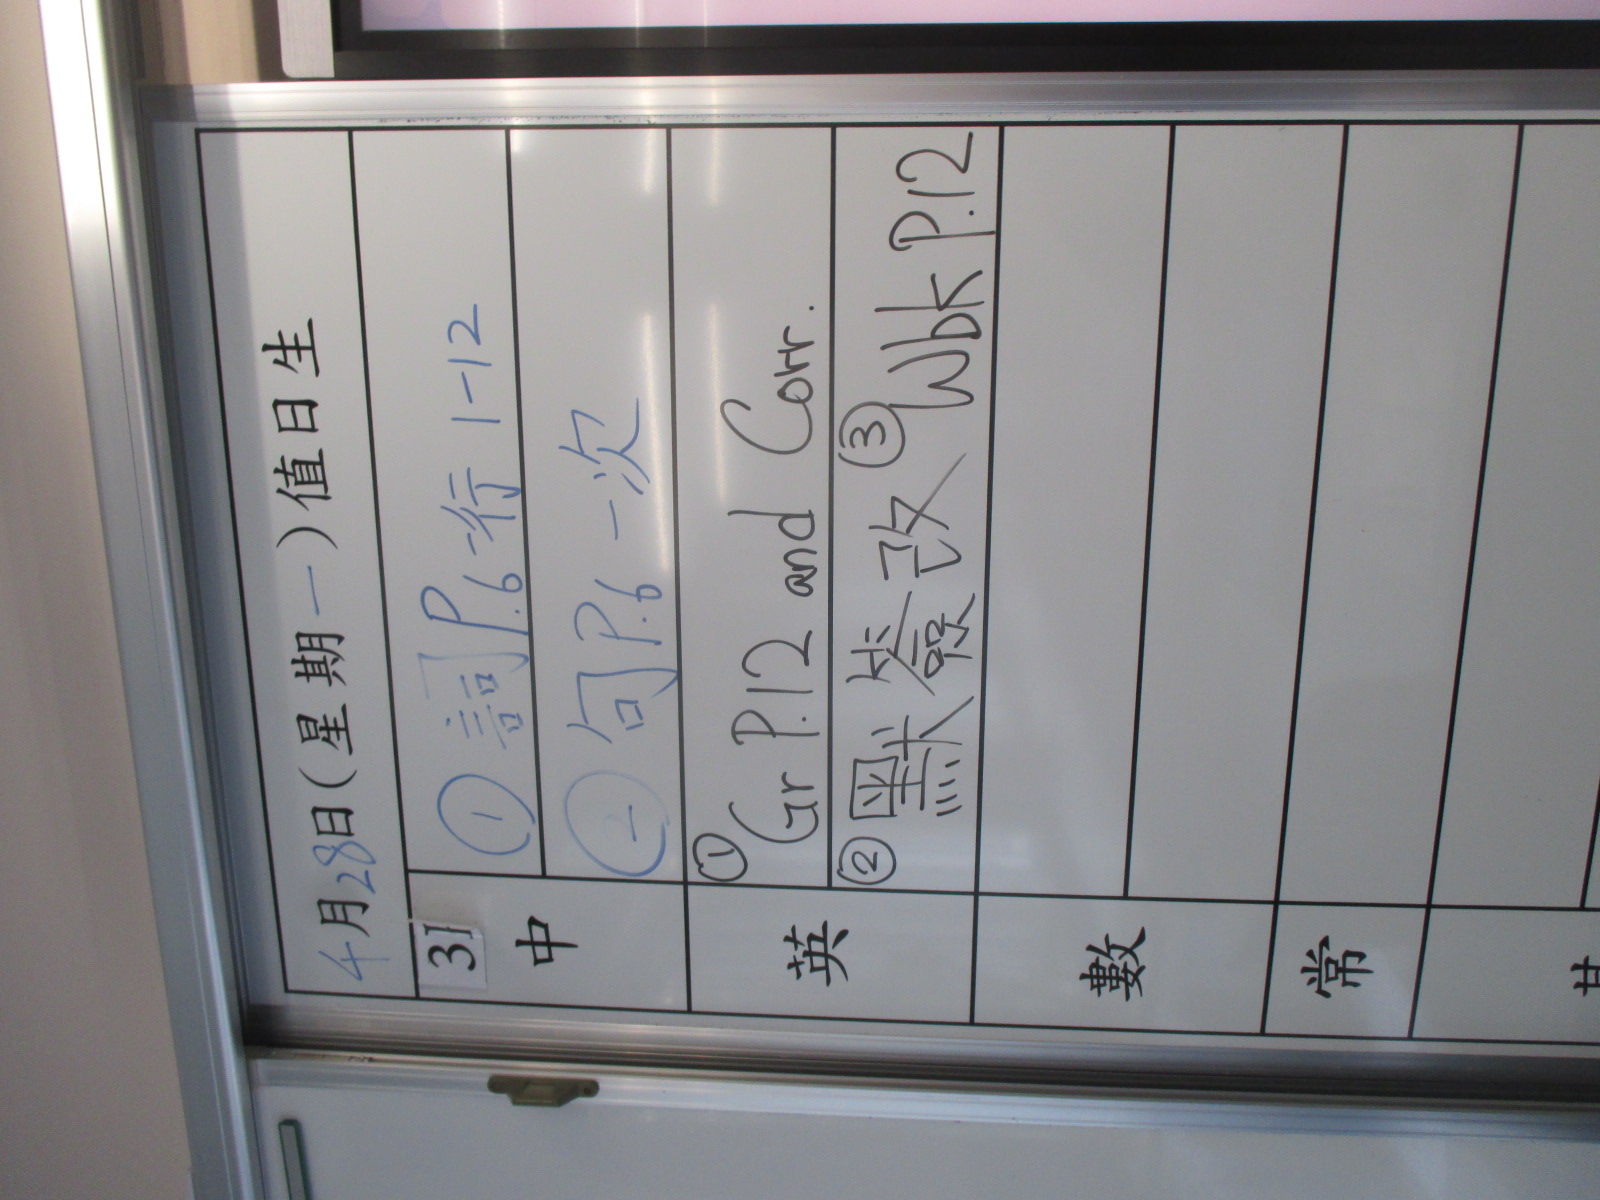 4月28日(星期一)值日生
31
中
① 詞P.6 一行 1-12
② 句P.6 一次
英
① Gr P.12 and Corr.
② 黑簽改 ③ Wbk P.12
數
常